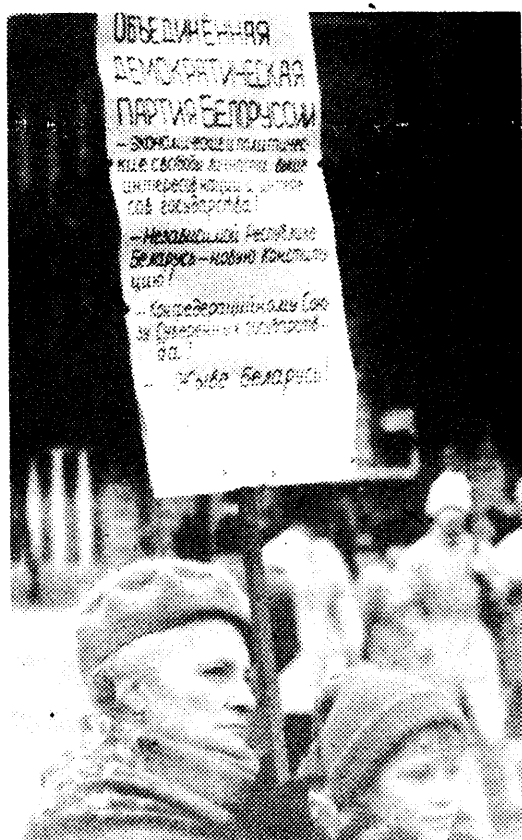 ОБЪЕДИНЕННАЯ
ДЕМОКРАТИЧЕСКАЯ
ПАРТИЯ БЕЛОРУССИИ
политичес-
кие свободы личности выше
интересов нации и интере-
сов государства!
– Независимой Республике
Беларусь – новую Конститу-
цию!
– Конфедерационному Сою-
зу Суверенных государств –
да!
– Жыве Беларусь!